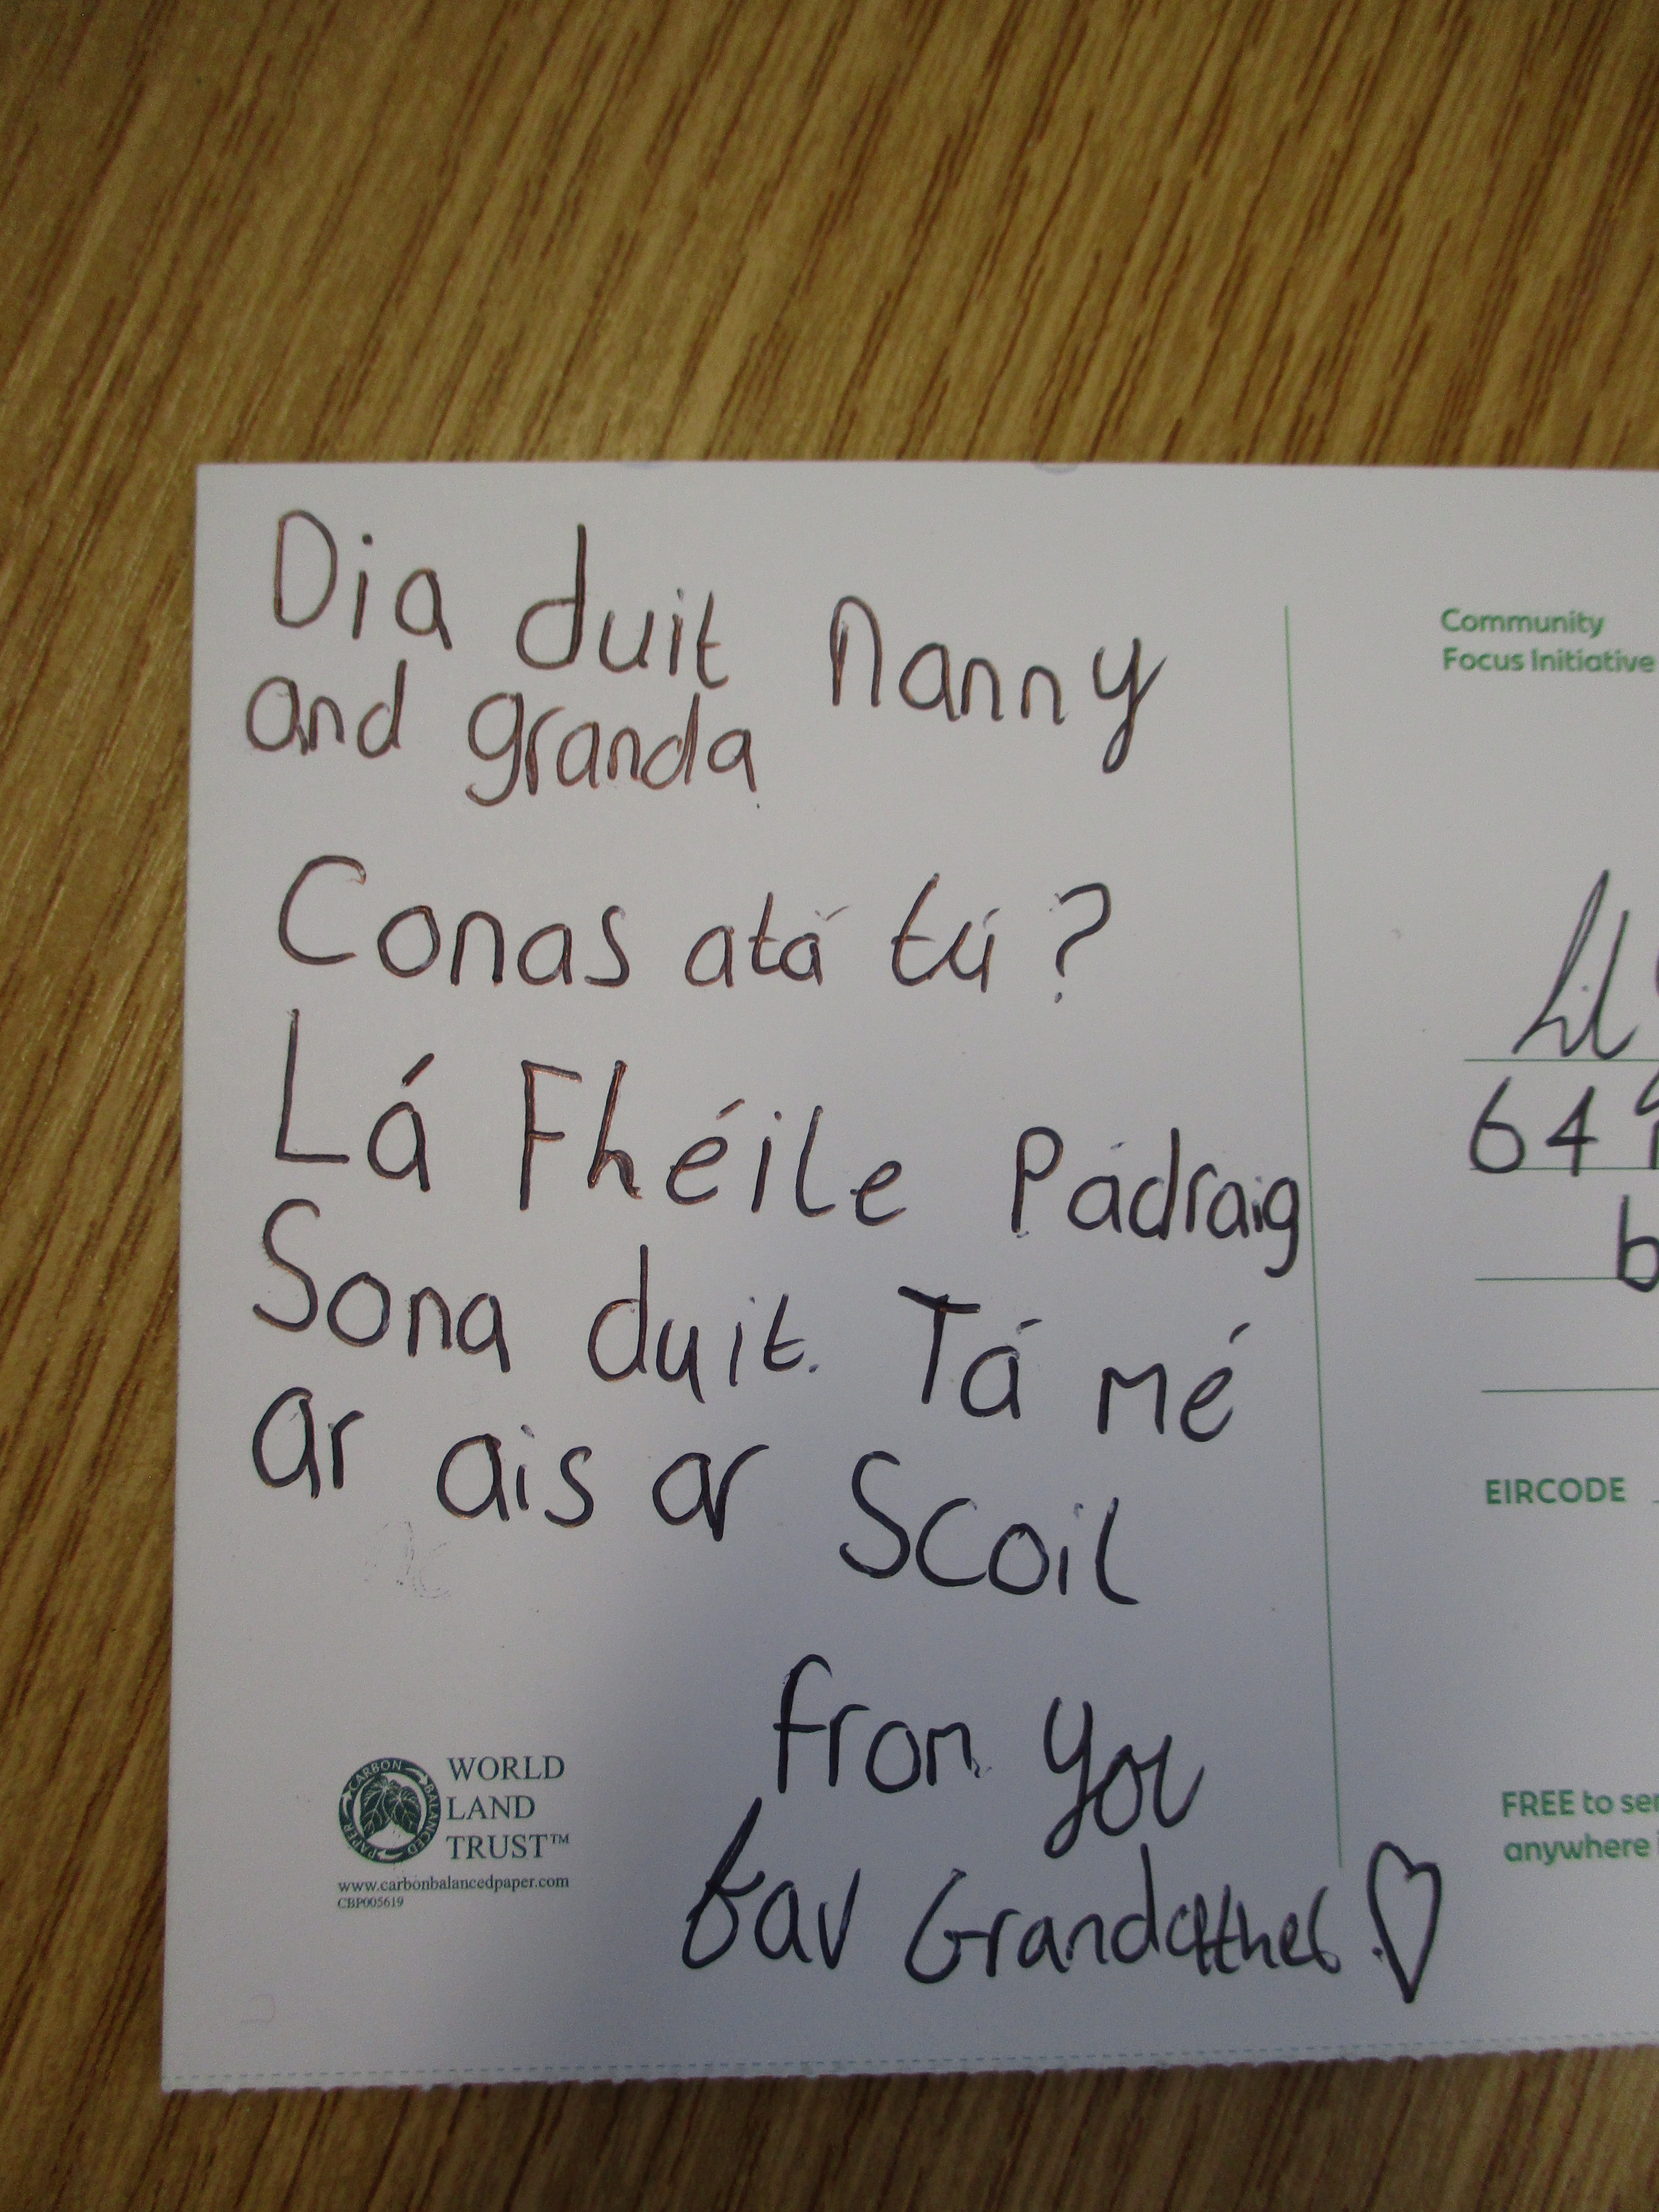 Dia duit Nanny
and granda
Conas atá tú?
Lá Fhéile Pádraig
Sona duit. Tá mé
ar ais ar Scoil
from you
fav
WORLD
LAND
TRUST™
CARBON BALANCED PAPER
www.carbonbalancedpaper.com
CBP005619
Community
Focus Initiative
64
b
EIRCODE
FREE to
anywhere